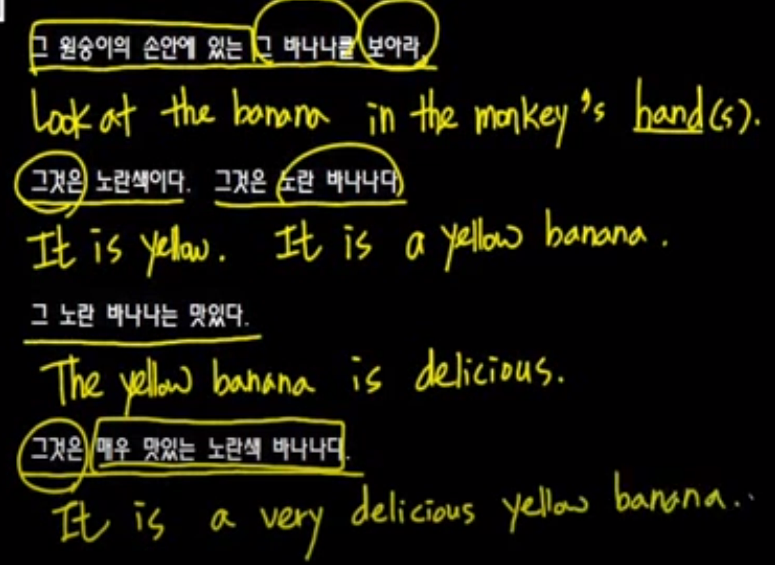 그 원숭이의 손안에 있는 그 바나나를 보아라.
Look at the banana in the monkey's hand(s).
그것은 노란색이다. 그것은 노란 바나나다.
It is yellow. It is a yellow banana.
그 노란 바나나는 맛있다.
The yellow banana is delicious.
그것은 매우 맛있는 노란색 바나나다.
It is a very delicious yellow banana..